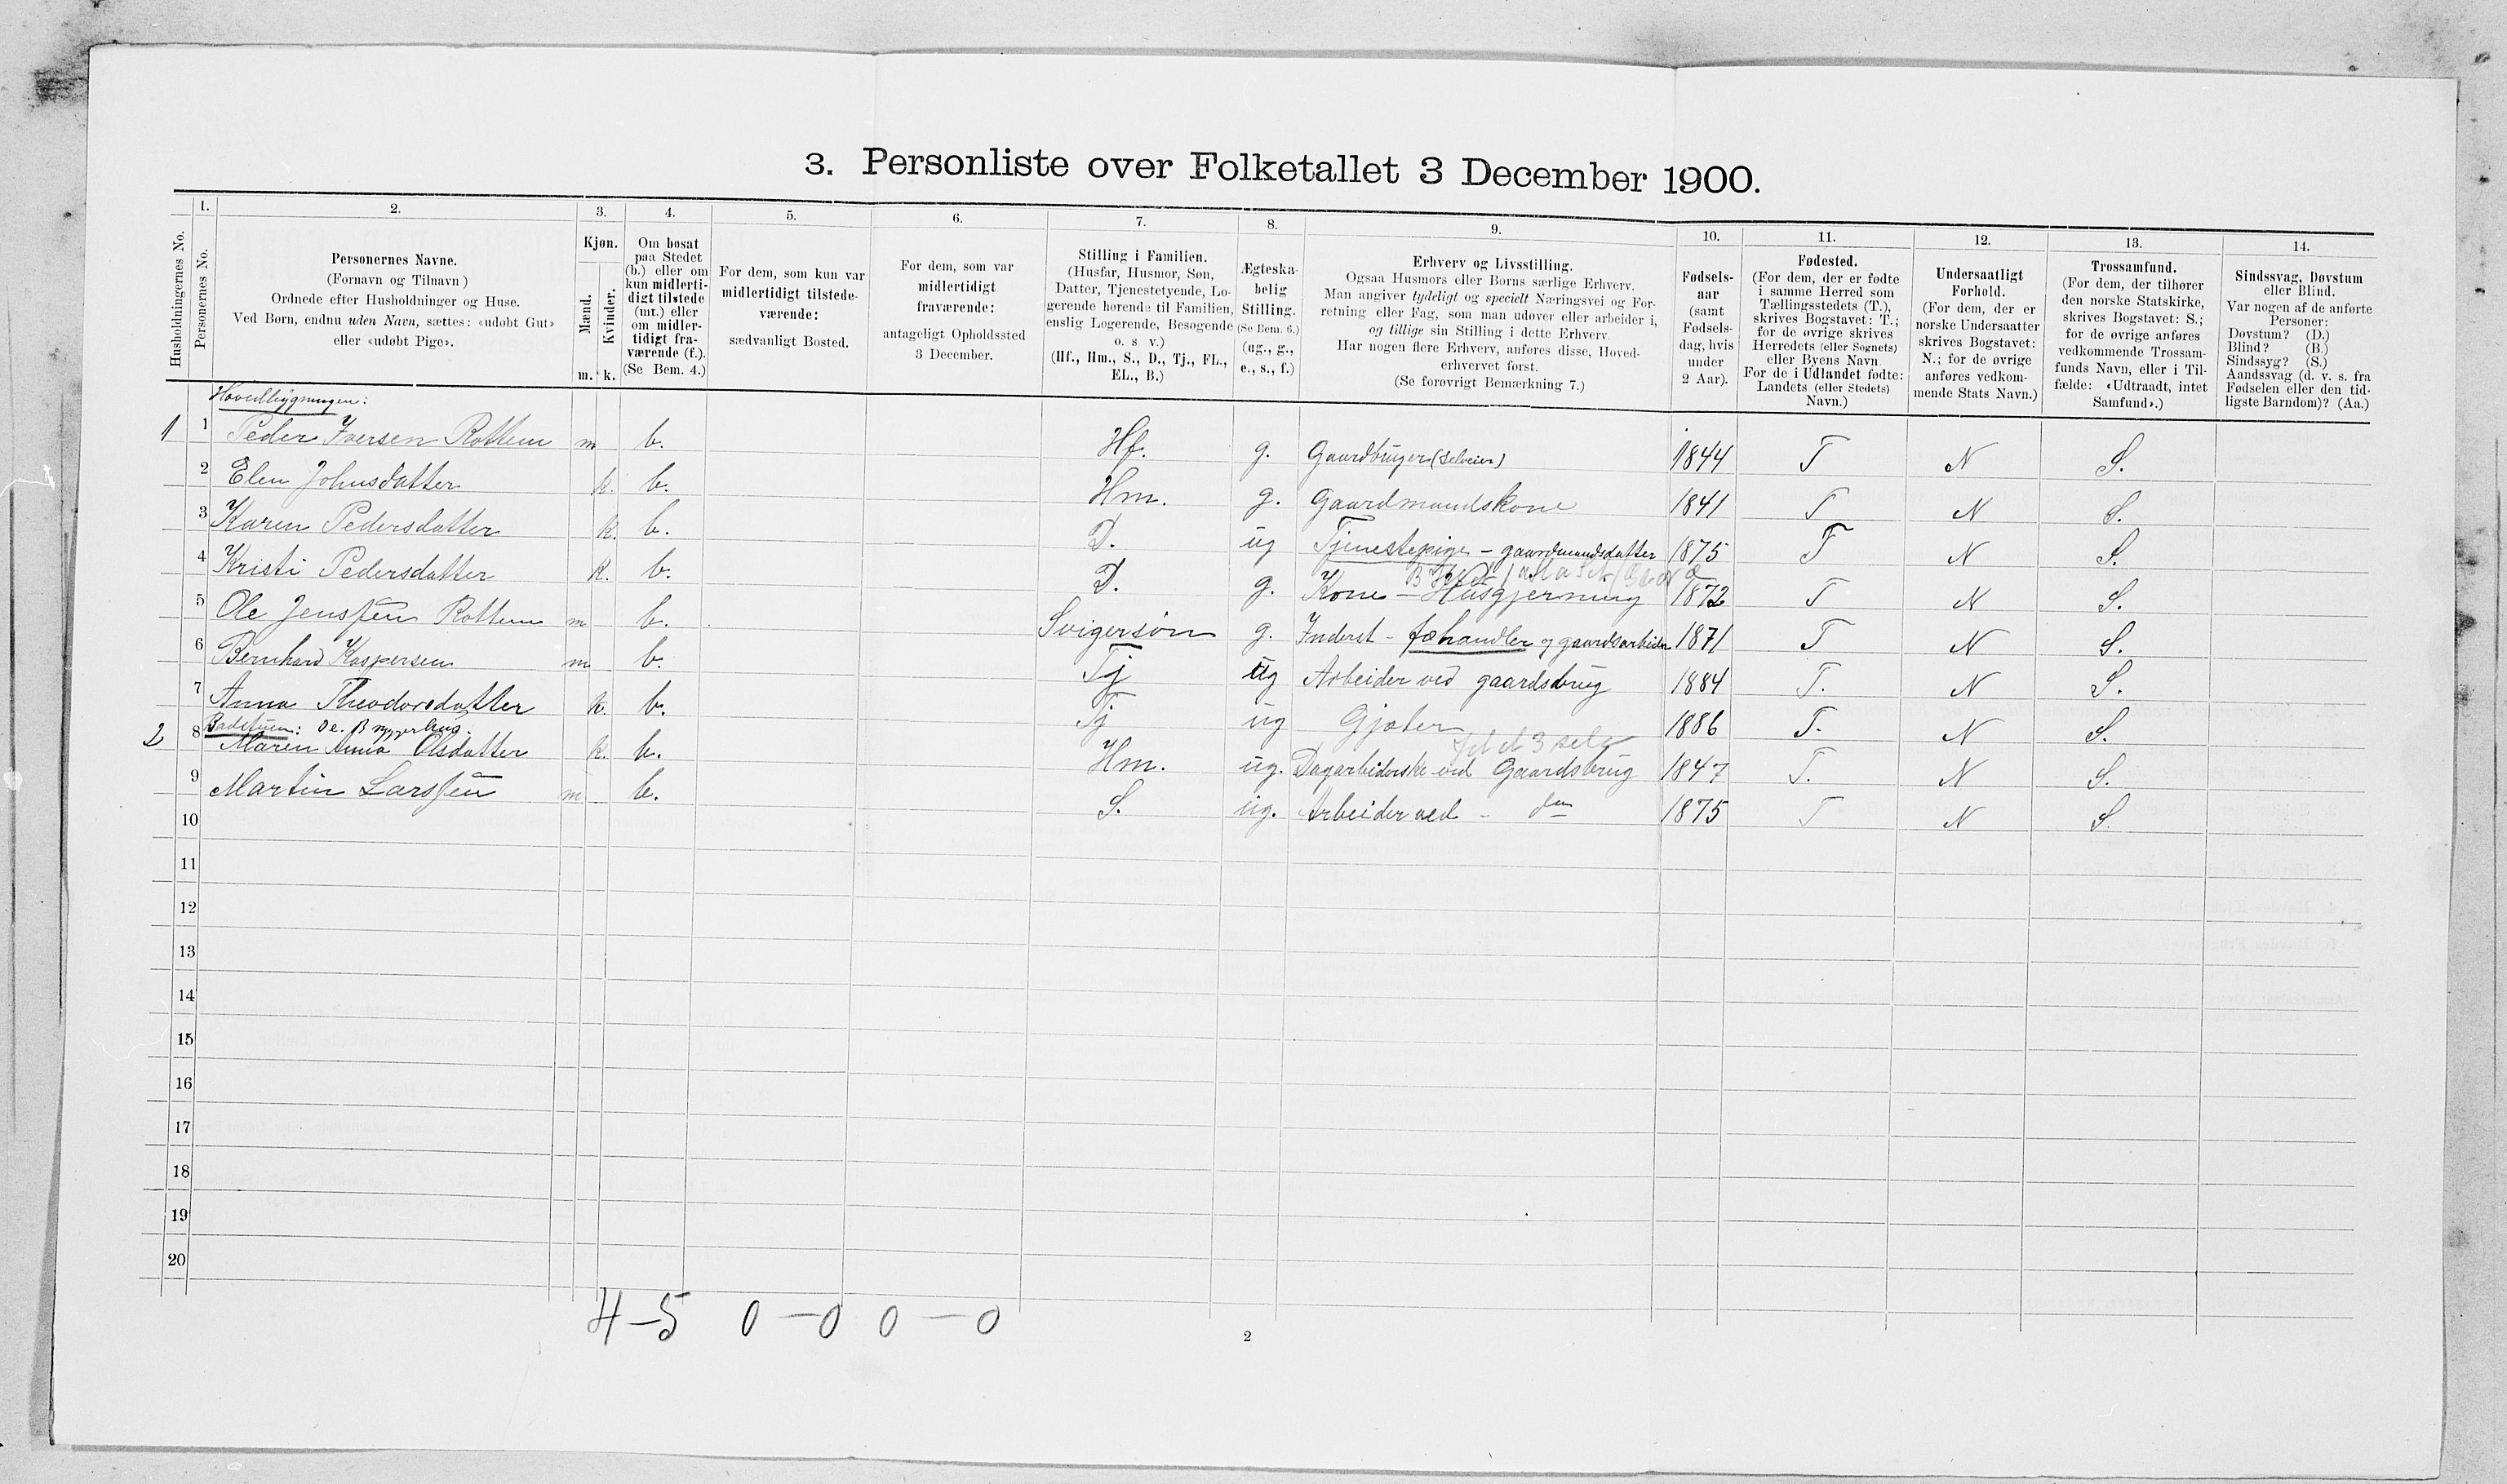 3. Personliste over Folketallet 3 December 1900.
1. 2. 3. 4. 5. 6. 7. 8. 9. 10. 11. 12. 13. 14.
Husholdningernes No.
Personernes No.
Personernes Navne.
(Fornavn og Tilnavn)
Ordnede efter Husholdninger og Huse.
Ved Børn, endnu uden Navn, sættes: «udøbt Gut»
eller «udøbt Pige».
Kjøn.
Mænd.
Kvinder.
m. k.
Om bosat
paa Stedet
(b.) eller om
kun midlerti-
digt tilstede
(mt.) eller
om midler-
tidigt fra-
værende (f.).
(Se Bem. 4.)
For dem, som kun var
midlertidigt tilstede-
værende:
sædvanligt Bosted.
For dem, som var
midlertidigt
fraværende:
antageligt Opholdssted
3 December.
Stilling i Familien.
(Husfar, Husmor, Søn,
Datter, Tjenestetyende, Lo-
gerende hørende til Familien,
enslig Logerende, Besøgende
o. s v.)
(Hf., Hm., S., D., Tj., FL.,
EL., B.)
Ægteska-
belig
Stilling.
(Se Bem. 6.)
(ug., g.,
e., s., f.)
Erhverv og Livsstilling.
Ogsaa Husmors eller Børns særlige Erhverv.
Man angiver tydeligt og specielt Næringsvei og For-
retning eller Fag, som man udøver eller arbeider i,
og tillige sin Stilling i dette Erhverv.
Har nogen flere Erhverv, anføres disse, Hoved-
erhvervet først.
(Se forøvrigt Bemærkning 7.)
Fødsels-
aar
(samt
Fødsels-
dag, hvis
under
2 Aar).
Fødested.
(For dem, der er fødte
i samme Herred som
Tællingsstedets (T.),
skrives Bogstavet: T.;
for de øvrige skrives
Herredets (eller Sognets)
eller Byens Navn
For de i Udlandet fødte:
Landets (eller Stedets)
Navn.)
Undersaatligt
Forhold.
(For dem, der er
norske Undersaatter
skrives Bogstavet:
N.; for de øvrige
anføres vedkom-
mende Stats Navn.)
Trossamfund.
(For dem, der tilhører
den norske Statskirke,
skrives Bogstavet: S.;
for de øvrige anføres
vedkommende Trossam-
funds Navn, eller i Til-
fælde: «Udtraadt, intet
Samfund».)
Sindssvag, Døvstum
eller Blind.
Var nogen af de anførte
Personer:
Døvstum? (D.)
Blind? (B.)
Sindssyg? (S.)
Aandssvag (d. v. s. fra
Fødselen eller den tid-
ligste Barndom)? (Aa.)
Hovedbygningen:
1 1 Peder Iversen Rottem m b. Hf. g. Gaardbruger (selveier) 1844 T N S.
2 Elen Johnsdatter k. b. Hm. g. Gaardmandskone 1841 T N S.
3 Karen Pedersdatter k. b. D. ug Tjenestepige - gaardmandsdatter 1875 T N S.
4 Kristi Pedersdatter k. b. D. g. Kone - Husgjerning 1872 T N S.
5 Ole Jenssen Rottem m b. Svigersøn g. Inderst - fæhandler og gaardsarbeider 1871 T N S.
6 Bernhard Kaspersen m b. Tj ug Arbeider ved gaardsbrug 1884 T. N S.
7 Anna Theodorsdatter k. b. Tj ug Gjæter 1886 T. N S.
Badstuen: o: Bryggerhus.
2 8 Maren Anna Olsdatter k. b. Hm. ug. Dagarbiderske ved Gaardsbrug 1847 T. N S.
9 Martin Larssen m b. S. ug. Arbeider ved - do 1875 T N S.
10
11
12
13
14
15
16
17
18
19
20
4-5 0-0 0-0
2